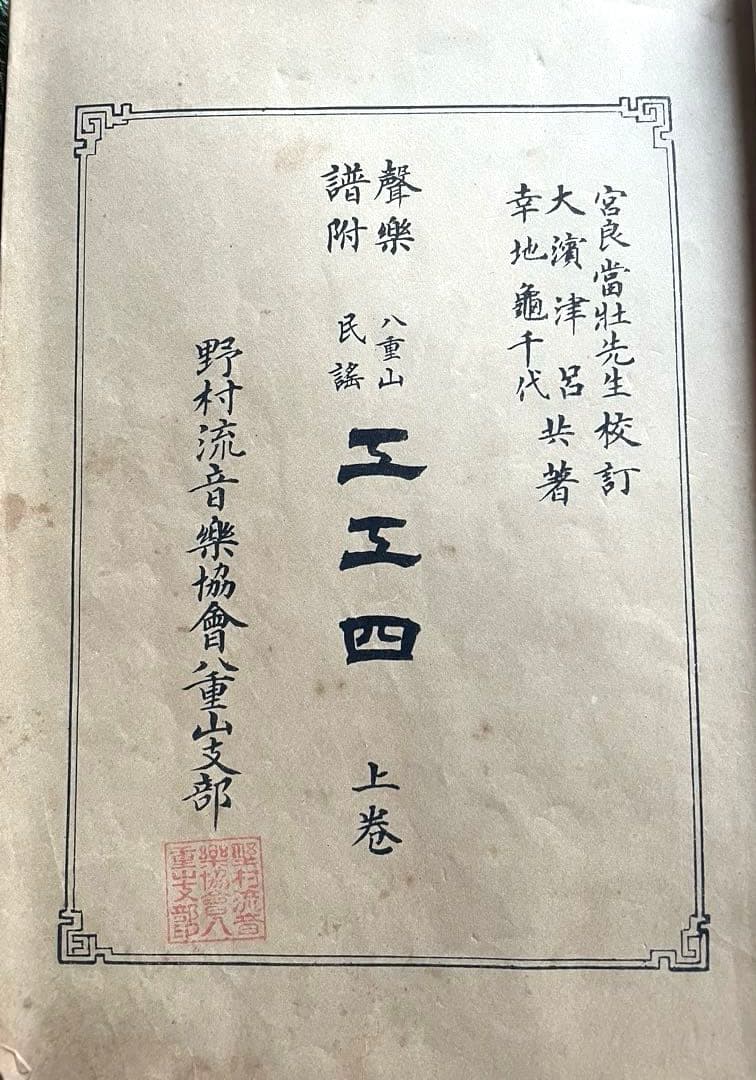 宮良當壯先生校訂
大濱津呂共著
幸地龜千代
聲樂
譜附
八重山
民謠
工工四
上卷
野村流音樂協會八重山支部
野村流音
樂協會八
重山支部印